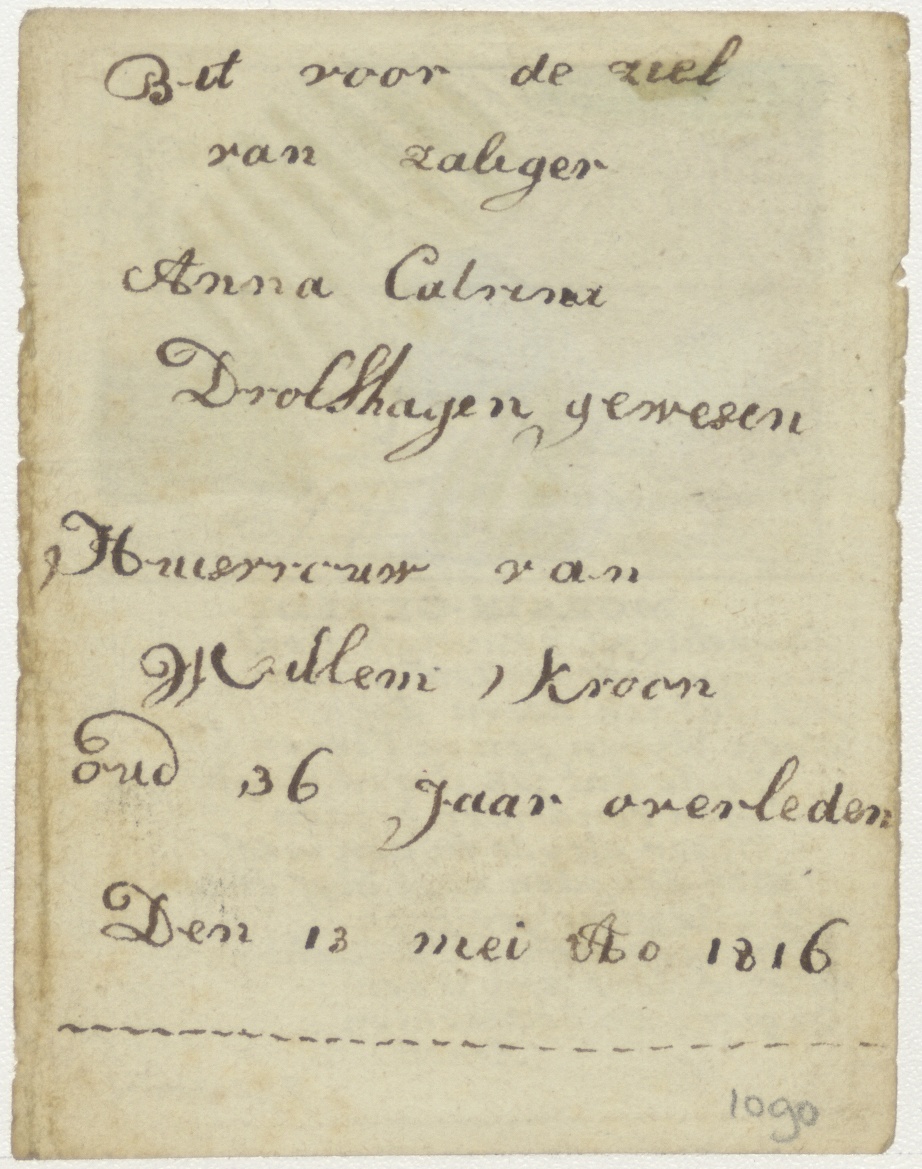 Bit voor de ziel
van zaliger
Anna Catrina
Drolshagen gewesen
Huisvrouw van
Willem Kroon
oud 36 Jaar overleden
Den 13 mei Ao 1816
1090